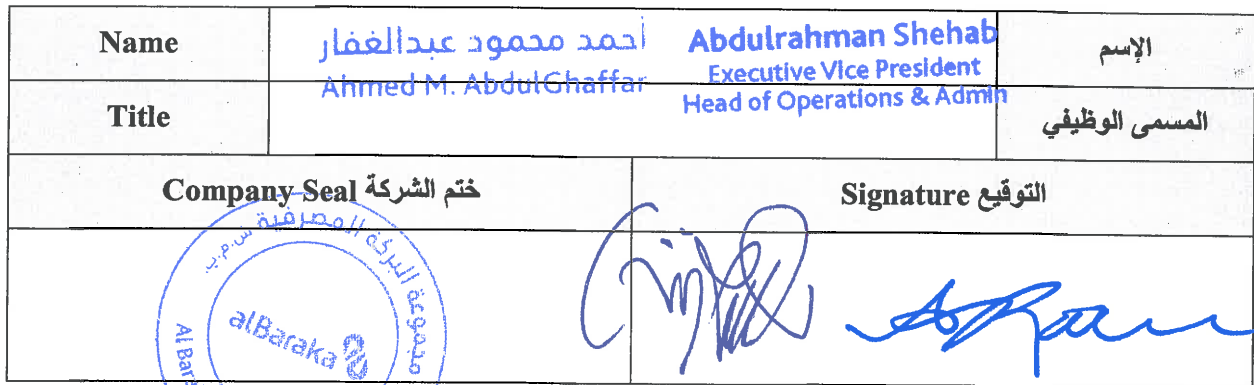 Name
أحمد محمود عبدالغفار
Ahmed M. AbdulGhaffar
Abdulrahman Shehab
Executive Vice President
Head of Operations & Admin
الإسم
Title
المسمى الوظيفي
Company Seal ختم الشركة
Signature التوقيع
مجموعة البركة المصرفية ش.م.ب.
alBaraka
Al